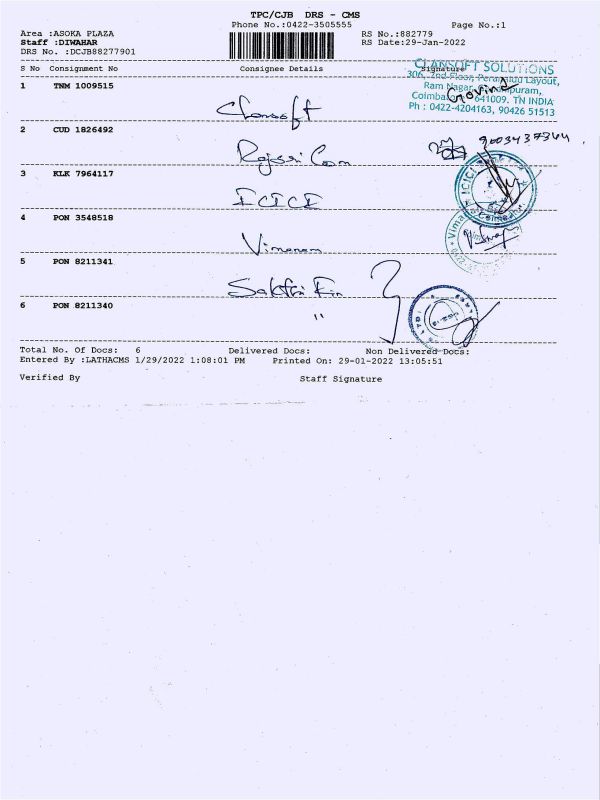 TPC/CJB DRS - CMS
Phone No.:0422-3505555 Page No.:1
Area :ASOKA PLAZA RS No.:882779
Staff :DIWAHAR RS Date:29-Jan-2022
DRS No. :DCJB88277901
S No Consignment No Consignee Details Signature
CLANSOFT SOLUTIONS
306, 2nd Floor, Perumal Layout,
Ram Nagar,
Coimbatore 641009. TN INDIA
Ph : 0422-4204163, 90426 51513
Govind
1 TNM 1009515
Clansoft
2 CUD 1826492
9003437344
3 KLK 7964117
ICICI
ICICI
4 PON 3548518
5 PON 8211341
6 PON 8211340
"
Total No. Of Docs: 6 Delivered Docs: Non Delivered Docs:
Entered By :LATHACMS 1/29/2022 1:08:01 PM Printed On: 29-01-2022 13:05:51
Verified By Staff Signature